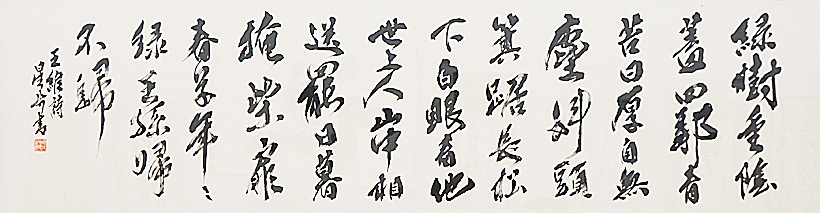 綠樹重陰
蓋四鄰青
苔日厚自無
塵科頭
箕踞長松
下白眼看他
世上人山中相
送罷日暮
掩柴扉
春草年々
綠王孫歸
不歸
王維詩
書